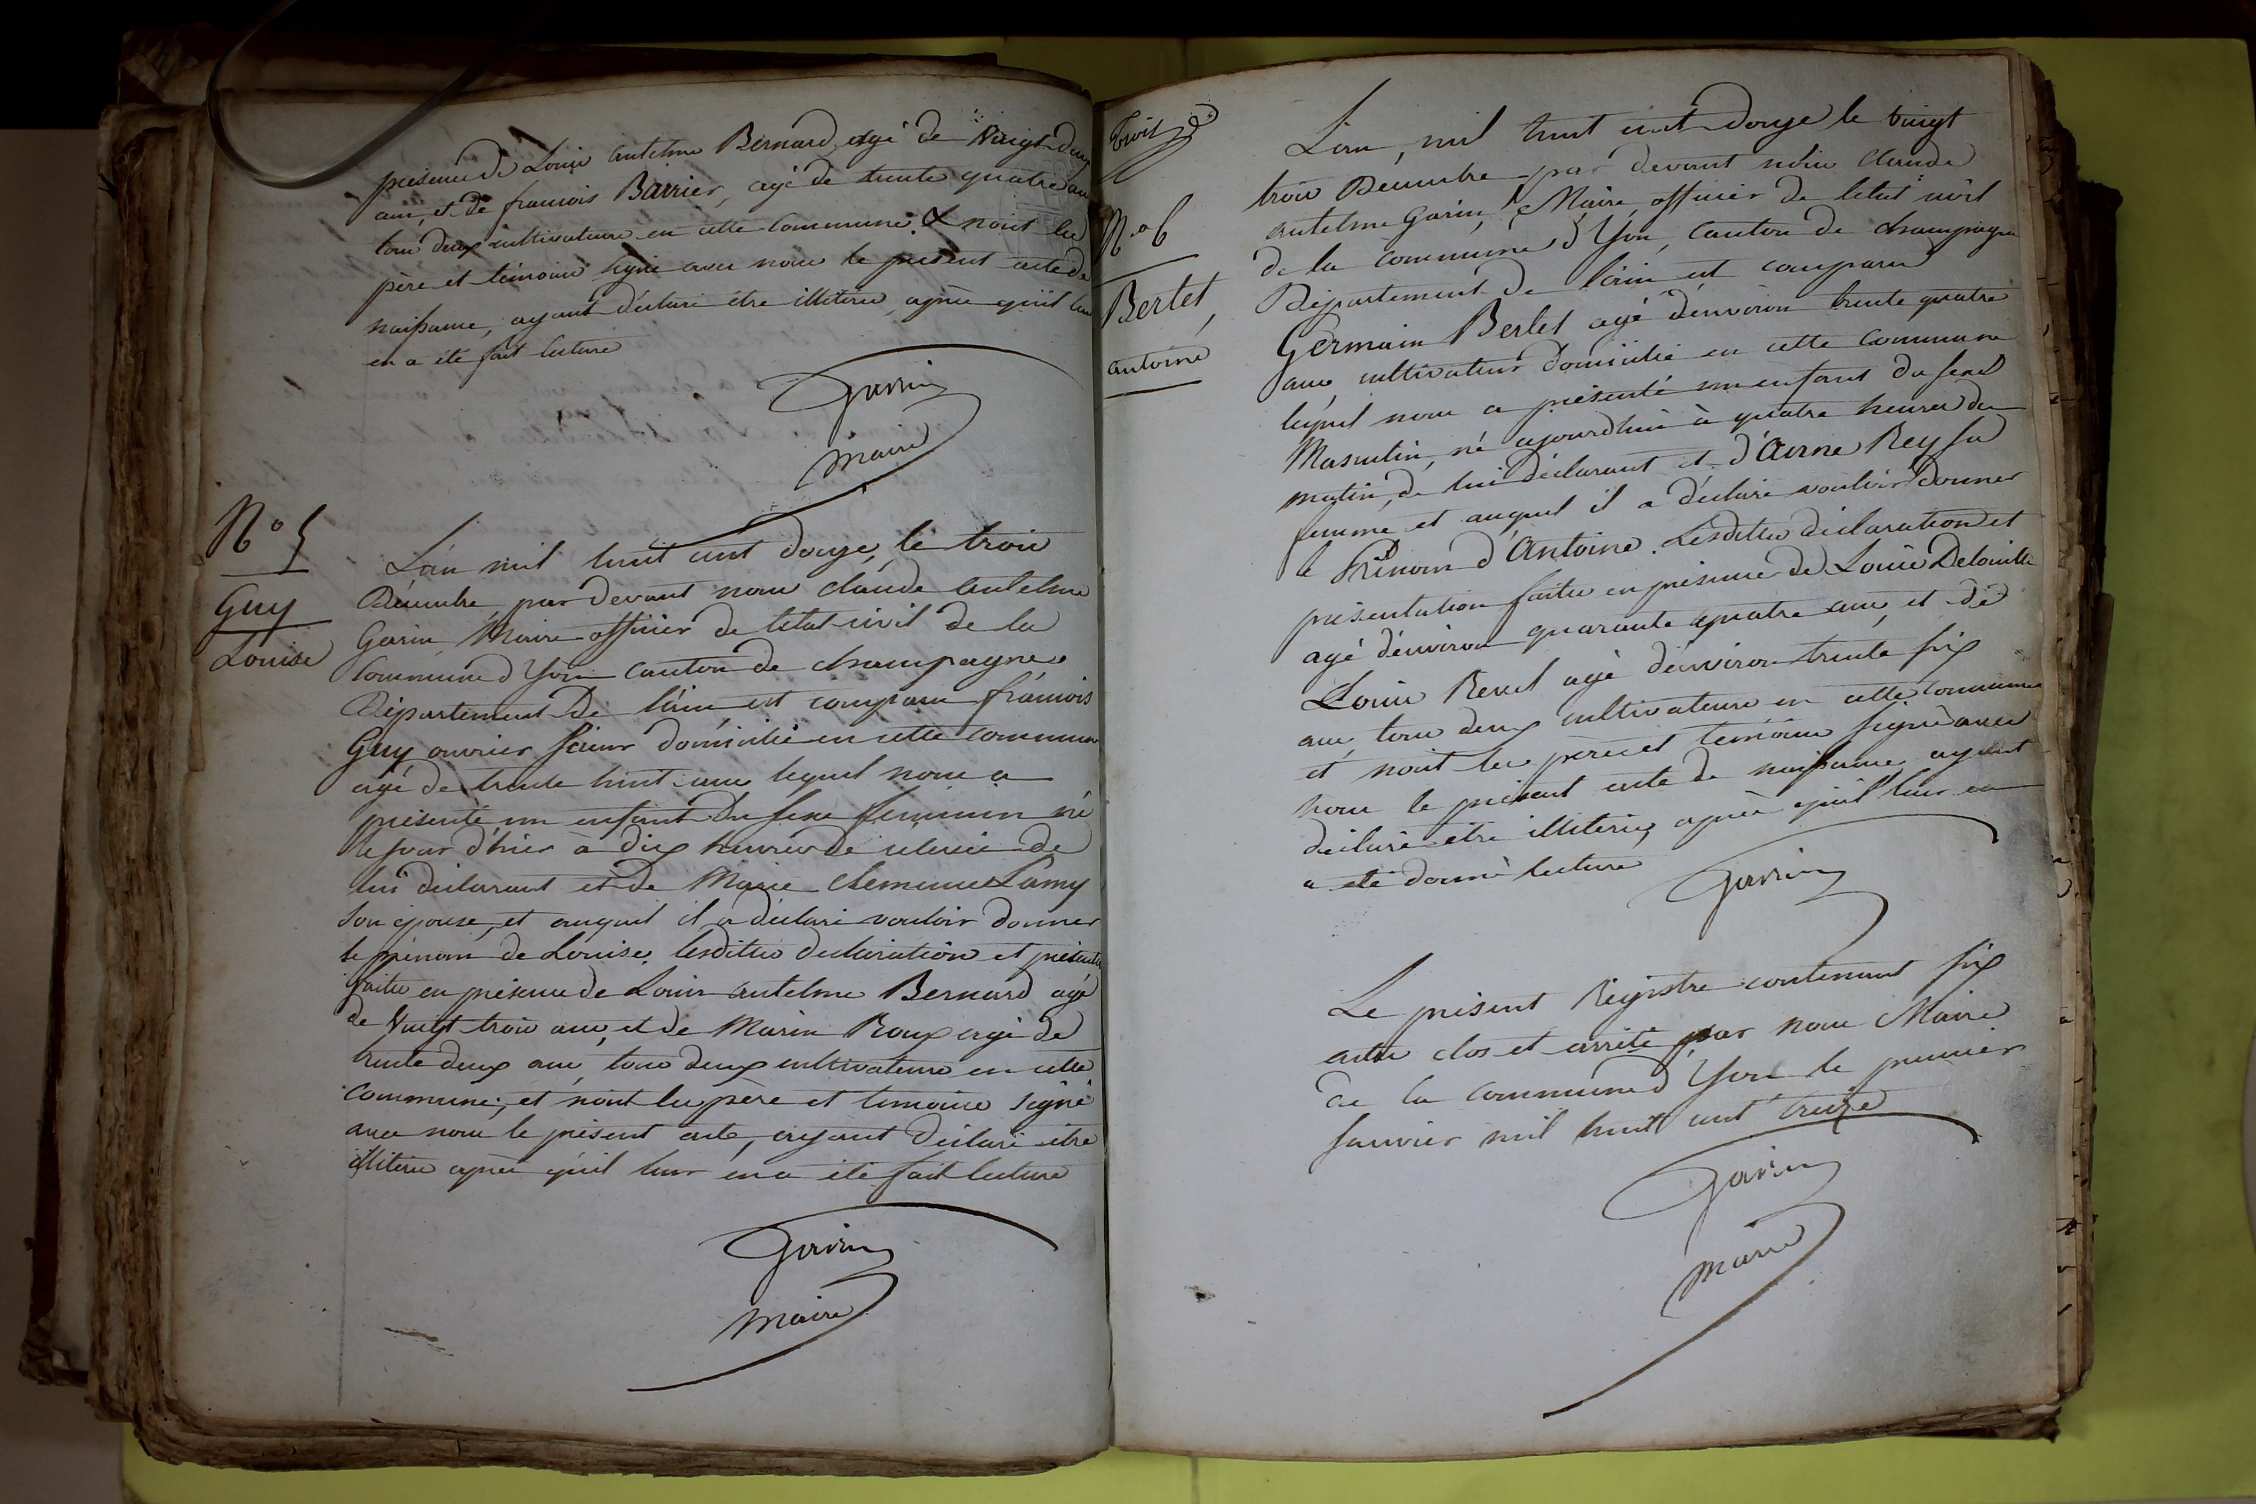 présence de Louis antelme Bernard, agé de vingt deux
ans, et de francois Barrier, agé de trente quatre ans
tous deux cultivateurs en cette commune. & n'ont les
père et témoins signé avec nous le présent acte de
naissance, ayant déclaré être illitérés, après qu'il leur
en a été fait lecture
Garin
maire
N° 5
Guy
Louise
L'an mil huit cent douze, le trois
Décembre par devant nous claude antelme
Garin, Maire officier de l'etat civil de la
Commune d'Yon canton de champagne
Département De l'ain, est comparu francois
Guy ouvrier scieur domicilié en cette commune
agé de trente huit ans lequel nous a
présenté un enfant du sexe feminin né
le jour d'hier à dix heures de relevée de
lui déclarant et de Marie Lamy
son épouse, et auquel il a déclaré vouloir donner
le prénom de Louise. lesdittes declaration et
faites en présence de Louis antelme Bernard agé
de vingt trois ans, et de Marin Roux agé de
trente deux ans, tous deux cultivateurs en cette
commune; et n'ont les père et temoins signé
avec nous le présent acte, ayant déclaré être
illitérés après qu'il leur en a été fait lecture
Garin
maire
trois
N° 6
Bertet,
antoine
L'an, mil huit cent douze le vingt
trois Décembre par devant nous claude
antelme Garin, Maire, officier de l'etat civil
de la commune d'Yon, canton de champagne
Département de l'ain est comparu
Germain Bertet agé d'environ trente quatre
ans, cultivateur domicilié en cette commune
lequel nous a présenté un enfant du sexe
Masculin, né ajourd'hui à quatre heures du
matin, de lui déclarant et d'Anne Rey sa
femme et auquel il a déclaré vouloir donner
le Prénom d'Antoine. Lesdittes déclaration et
présentation faites en présence de Louis
agé d'environ quarante quatre ans, et de
Louis Revel agé d'environ trente six
ans, tous deux cultivateurs en cette commune
et n'ont les père et temoins signé avec
nous le présent acte de naissance, ayant
déclaré être illitérés, après qu'il leur en
a été donné lecture
Garin
Le présent Registre contenant six
actes clos et arrêté par nous Maire
de la commune d'Yon le premier
Janvier mil huit cent treize
Garin
maire